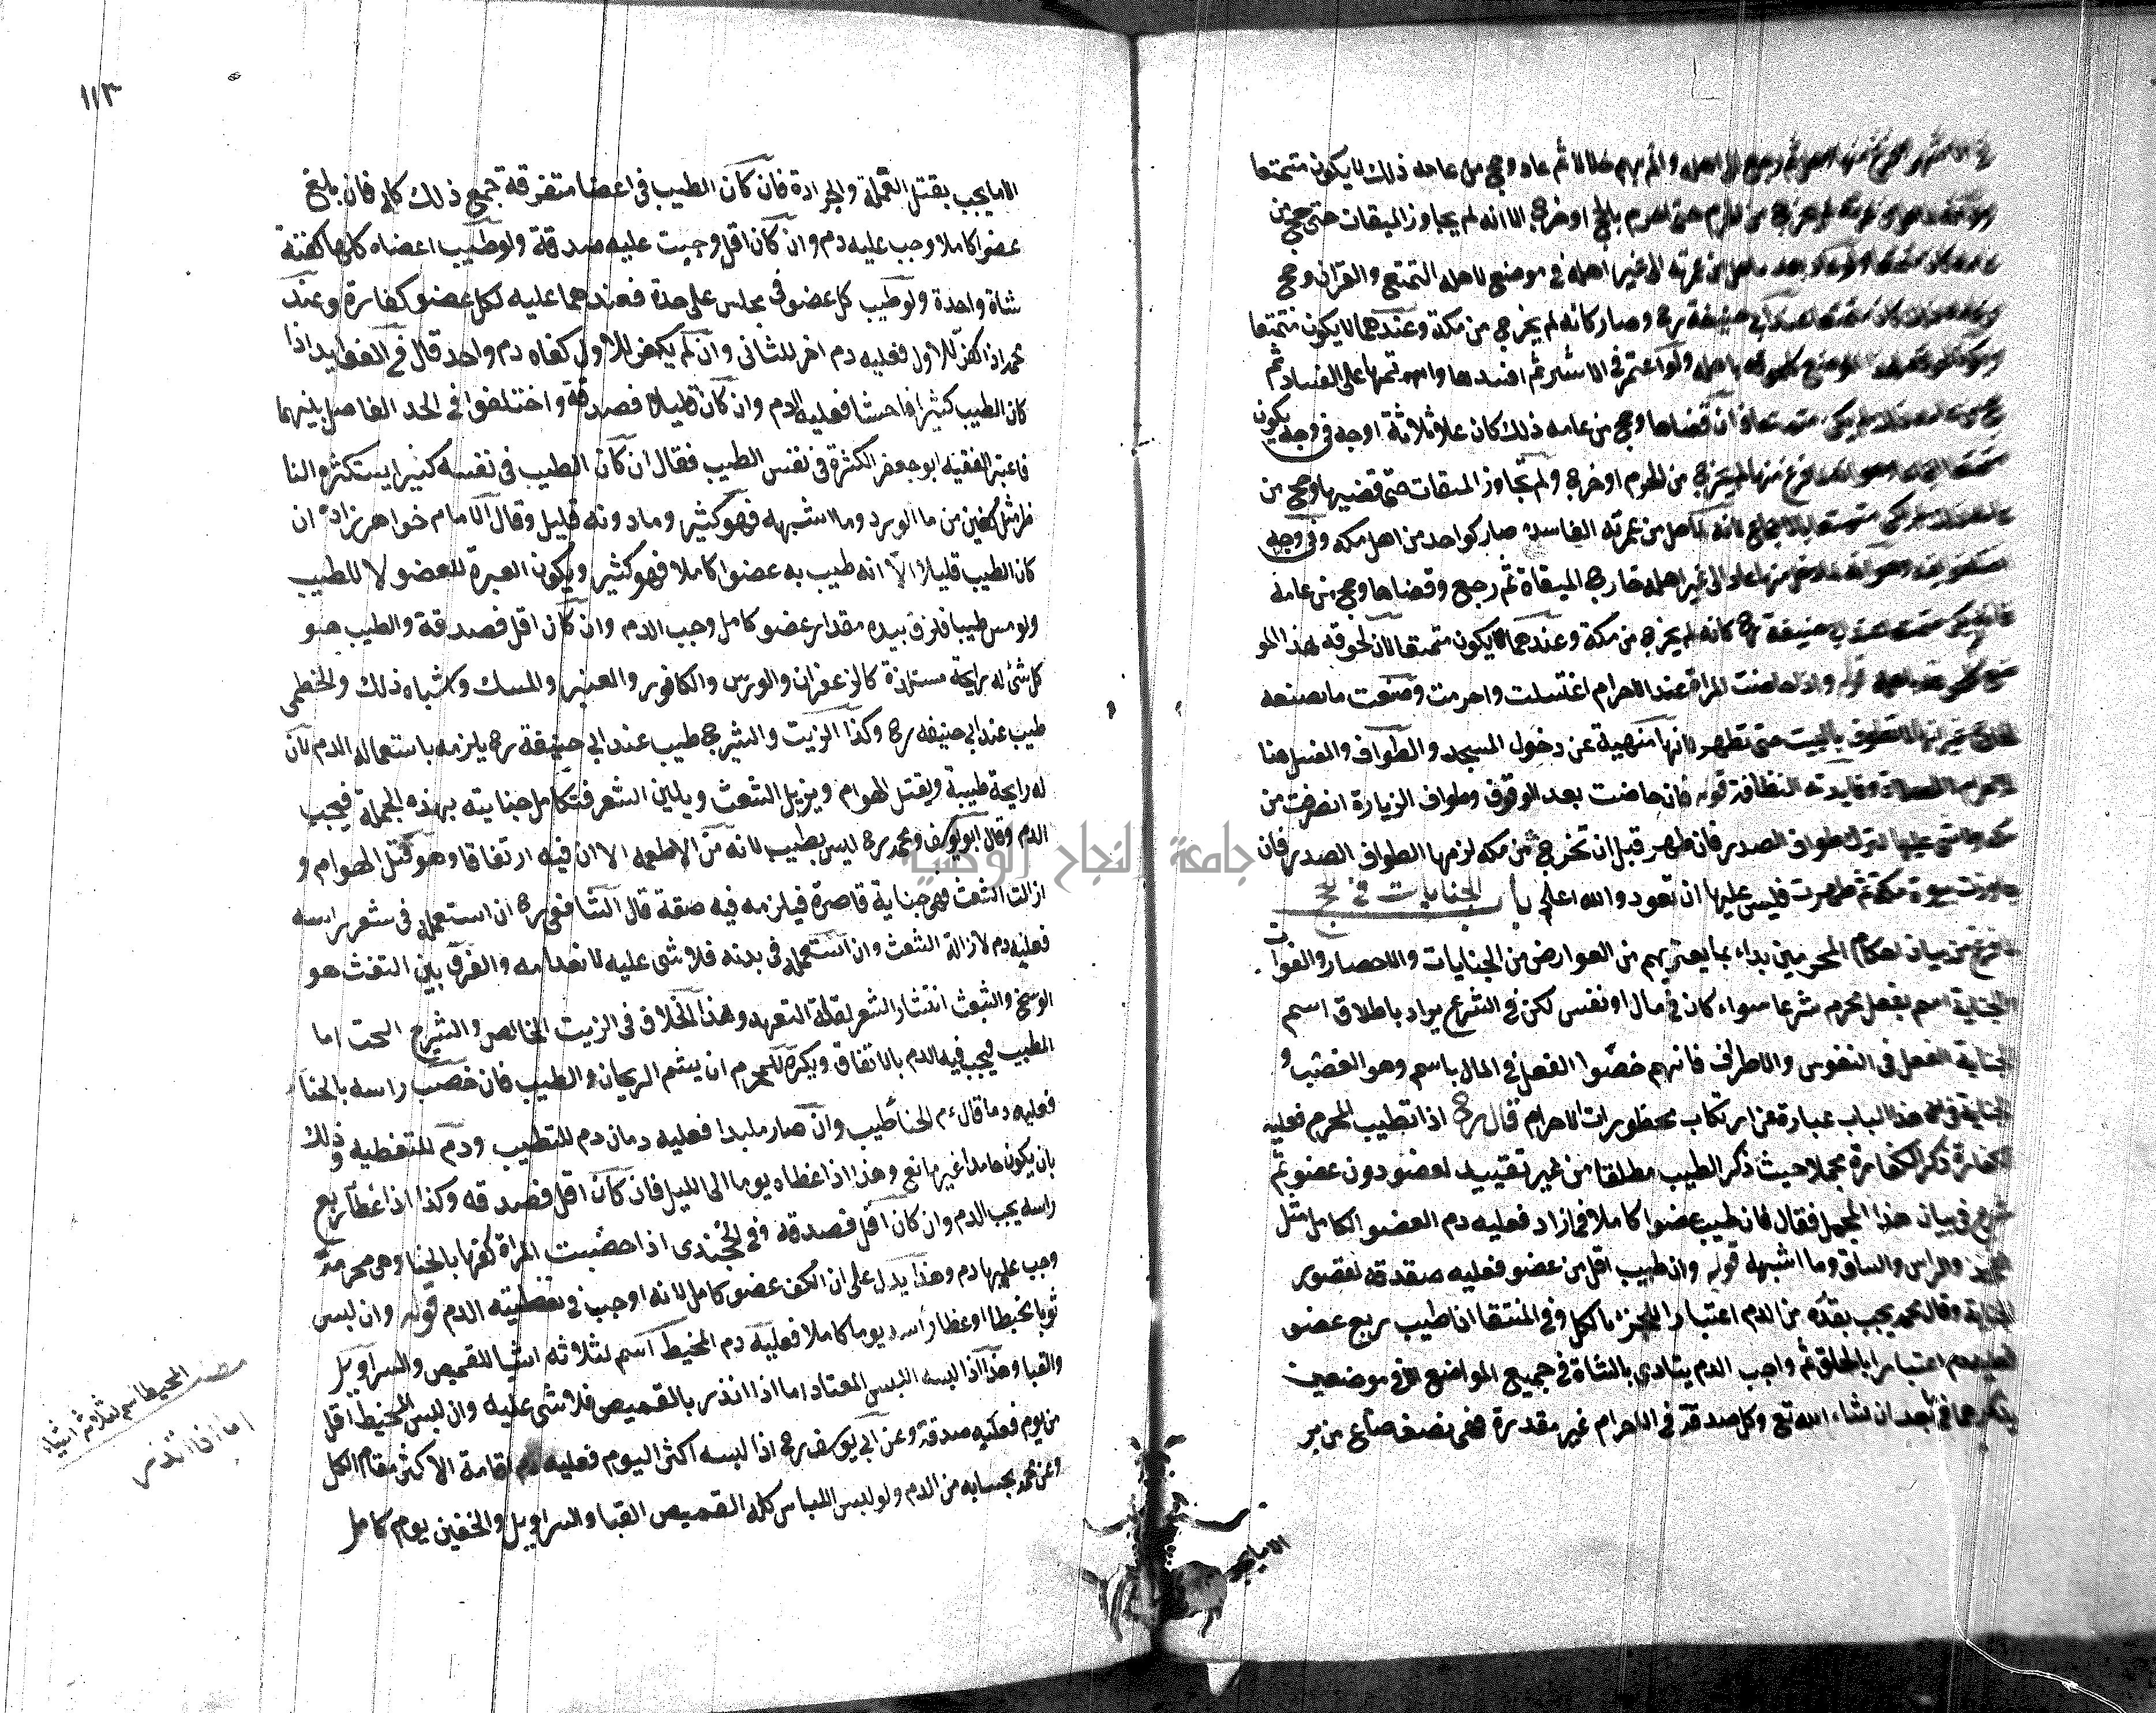 ثم رجع الى اهله والم بهم حلالا ثم عاد وحج من عامه ذلك لا يكون متمتعا
من الحرم حتى احرم بالحج او خرج الا انه لم يجاوز الميقات حتى حج من
بعد ما حل من عمرته الى غير اهله في موضع لاهله التمتع والقران وحج
عند ابي حنيفة رح وصار كانه لم يخرج من مكة وعندهما لا يكون متمتعا
باهله ولو اعتمر في الاشهر ثم افسدها واتمها على الفساد ثم
قضاها وحج من عامه ذلك كان على ثلاثة اوجه في وجه يكون
فرغ منها لم يخرج من الحرم او خرج ولم يتجاوز الميقات حتى قضيها وحج من
بالاجماع لانه لما حل من عمرته الفاسدة صار كواحد من اهل مكة وفي وجه
عاد الى غير اهله خارج الميقاة ثم رجع وقضاها وحج من عامه
حنيفة رح كانه لم يخرج من مكة وعندهما لا يكون متمتعا لان لحوقه بهذا المو
قوله واذا حاضت المراة عند الاحرام اغتسلت واحرمت وصنعت ما يصنعه
غير انها لا تطوف بالبيت حتى تطهر لانها منهية عن دخول المسجد والطواف والغسل هنا
وفايدته النظافة قوله فان حاضت بعد الوقوف وطواف الزيارة انصرفت من
مكة ولا شي عليها لترك طواف الصدر فان طهرت قبل ان تخرج من مكة لزمها الطواف الصدر فان
جاوزت بيوت مكة ثم طهرت فليس عليها ان تعود والله اعلم باب الجنايات في الحج
لما فرغ من بيان احكام المحرمين بداء بما يعتريهم من العوارض من الجنايات والاحصار والفوات
والجناية اسم لفعل محرم شرعا سواء كان في مال او نفس لكن في الشرع يراد باطلاق اسم
الجناية الفعل في النفوس والاطراف فانهم خصوا الفعل في المال باسم وهو الغصب و
الجناية في هذا الباب عبارة عن ارتكاب محظورات الاحرام قال رح اذا تطيب المحرم فعليه
الكفارة ذكر الكفارة مجملا حيث ذكر الطيب مطلقا من غير تقييد لعضو دون عضو ثم
شرع في بيان هذا المجمل فقال فان طيب عضوا كاملا فما زاد فعليه دم العضو الكامل مثل
الفخذ والراس والساق وما اشبهه قوله وان طيب اقل من عضو فعليه صدقة لقصور
الجناية وقال محمد يجب بقدره من الدم اعتبارا للجزء بالكل وفي المنتقا اذا طيب ربع عضو
فعليه دم اعتبارا بالحلق ثم واجب الدم يتادى بالشاة في جميع المواضع الا في موضعين
يذكرهما في بعد ان شاء الله تع وكل صدقة في الاحرام غير مقدرة فهي نصف صاع من بر
الا ما يجب
١١٣
الا ما يجب بقتل القملة والجرادة فان كان الطيب في اعضا متفرقة جمع ذلك كله فان بلغ
عضوا كاملا وجب عليه دم وان كان اقل وجبت عليه صدقة ولو طيب اعضاه كلها كفته
شاة واحدة ولو طيب كل عضو في مجلس على حدة فعندهما عليه لكل عضو كفارة وعند
محمد اذا كفر للاول فعليه دم اخر للثاني وان لم يكفر للاول كفاه دم واحد قال في الفوايد اذا
كان الطيب كثيرا فاحشا فعليه الدم وان كان قليلا فصدقة واختلفوا في الحد الفاصل بينهما
فاعتبر الفقيه ابو جعفر الكثرة في نفس الطيب فقال ان كان الطيب في نفسه كثيرا يستكثره النا
ظر مثل كفين من ما الورد وما اشبهه فهو كثير وما دونه قليل وقال الامام خواهر زاده ان
كان الطيب قليلا الا انه طيب به عضوا كاملا فهو كثير ويكون العبرة للعضو لا للطيب
ولو مس طيبا فلزق بيده مقدار عضو كامل وجب الدم وان كان اقل فصدقة والطيب هو
كل شئ له رايحة مستلذة كالزعفران والورس والكافور والعنبر والمسك واشباه ذلك والخطمي
طيب عند ابي حنيفه رح وكذا الزيت والشيرج طيب عند ابي حنيفة رح يلزمه باستعماله الدم لان
له رايحة طيبة ويقتل الهوام ويزيل الشعث ويلين الشعر فتكامل جنايته بهذه الجملة فيجب
الدم وقال ابو يوسف ومحمد رح ليس بطيب لانه من الاطعمه الا ان فيه ارتفاقا وهو قتل الهوام و
ازالت الشعث فهي جناية قاصرة فيلزمه فيه صدقة قال الشافعي رح ان استعمله في شعر راسه
فعليه دم لازالة الشعث وان استعمله في بدنه فلا شي عليه لانعدامه والفرق بين التفث هو
الوسخ والشعث انتشار الشعر لقلة التعهد وهذا الخلاف في الزيت الخالص والشيرج البحت اما
المطيب فيجب فيه الدم بالاتفاق ويكره للمحرم ان يشم الريحان والطيب فان خضب راسه بالحنا
فعليه دم قال ءم الحنا طيب وان صار ملبدا فعليه دمان دم للتطيب ودم للتغطيه وذلك
بان يكون جامدا غير مانع وهذا اذا غطاه يوما الى الليل فان كان اقل فصدقه وكذا اذا غطا ربع
راسه يجب الدم وان كان اقل فصدقه وفي الخجندي اذا خضبت المراة كفها بالحنا وهي محرمة
وجب عليها دم وهذا يدل على ان الكف عضو كامل لانه اوجب في تغطيته الدم قوله وان لبس
ثوبا مخيطا او غطا راسه يوما كاملا فعليه دم المخيط اسم لثلاثه اشيا للقميص والسراويل
والقبا وهذا اذا لبسه اللبس المعتاد اما اذا اتزر بالقميص فلا شي عليه وان لبس المخيط اقل
من يوم فعليه صدقة وعن ابي يوسف رح اذا لبسه اكثر اليوم فعليه دم اقامة الاكثر مقام الكل
وعن محمد بحسابه من الدم ولو لبس اللباس كله القميص القبا والسراويل والخفين يوم كامل
المخيط اسم لثلاثة اشياء
اما اذا اتزر
جامعة النجاح الوطنية